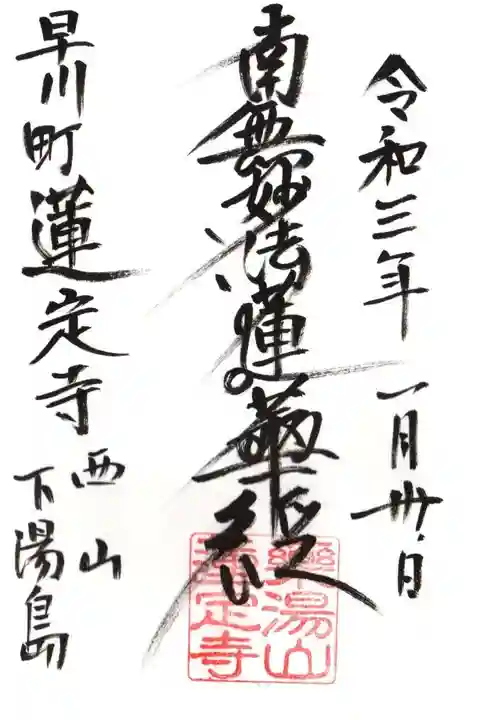 令和三年一月卅日
南無妙法蓮華経
樂湯山
蓮定寺
早川町蓮定寺
西山
下湯島